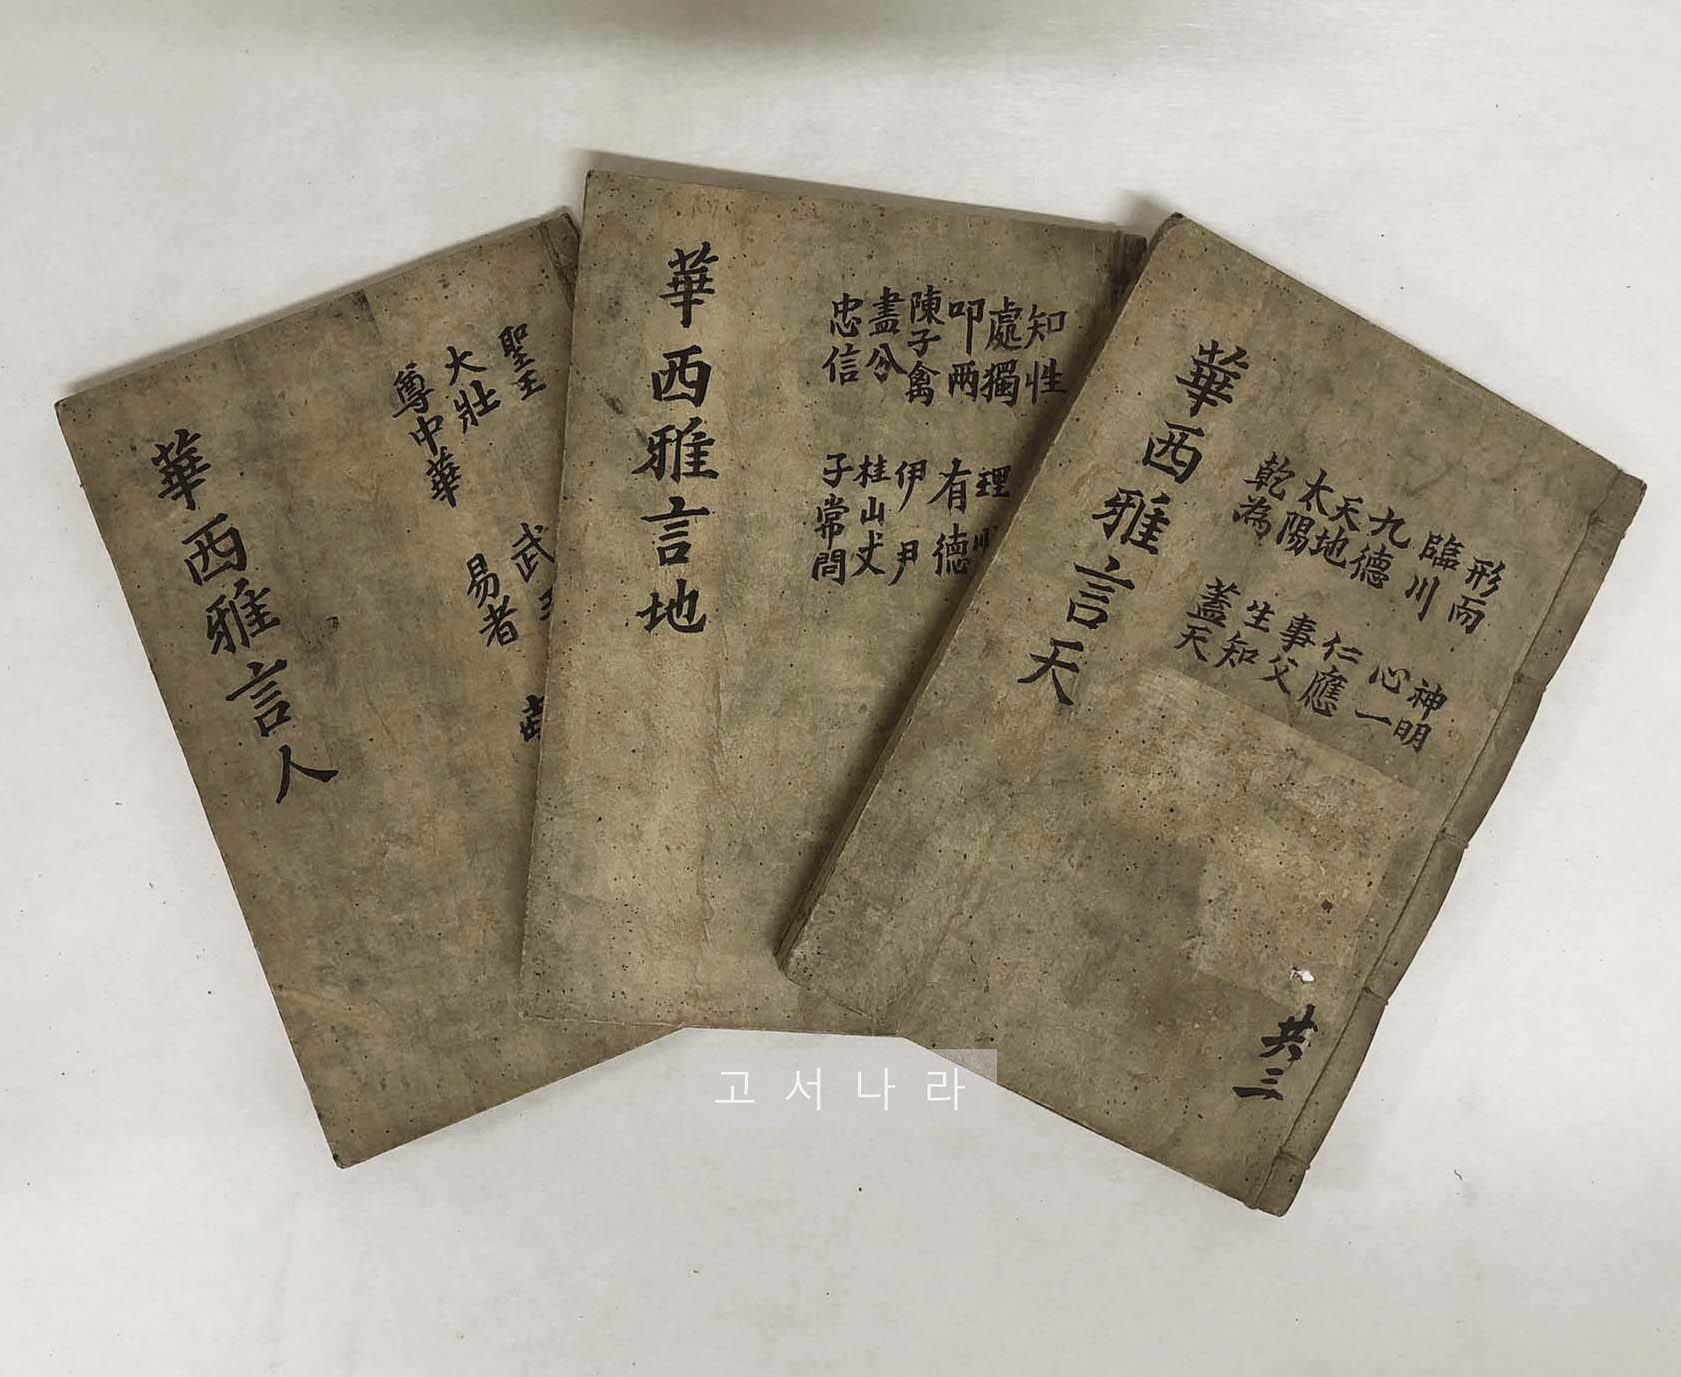 華西雅言天
形而
臨川
九德
天地
太陽
乾為
神明
心一
仁應
事父
生知
蓋天
共三
華西雅言地
知性
處獨
叩兩
陳子禽
盡分
忠信
理
有德
伊尹
桂山丈
子常問
華西雅言人
聖王
大壯
尊中華
武王
易者
고서나라